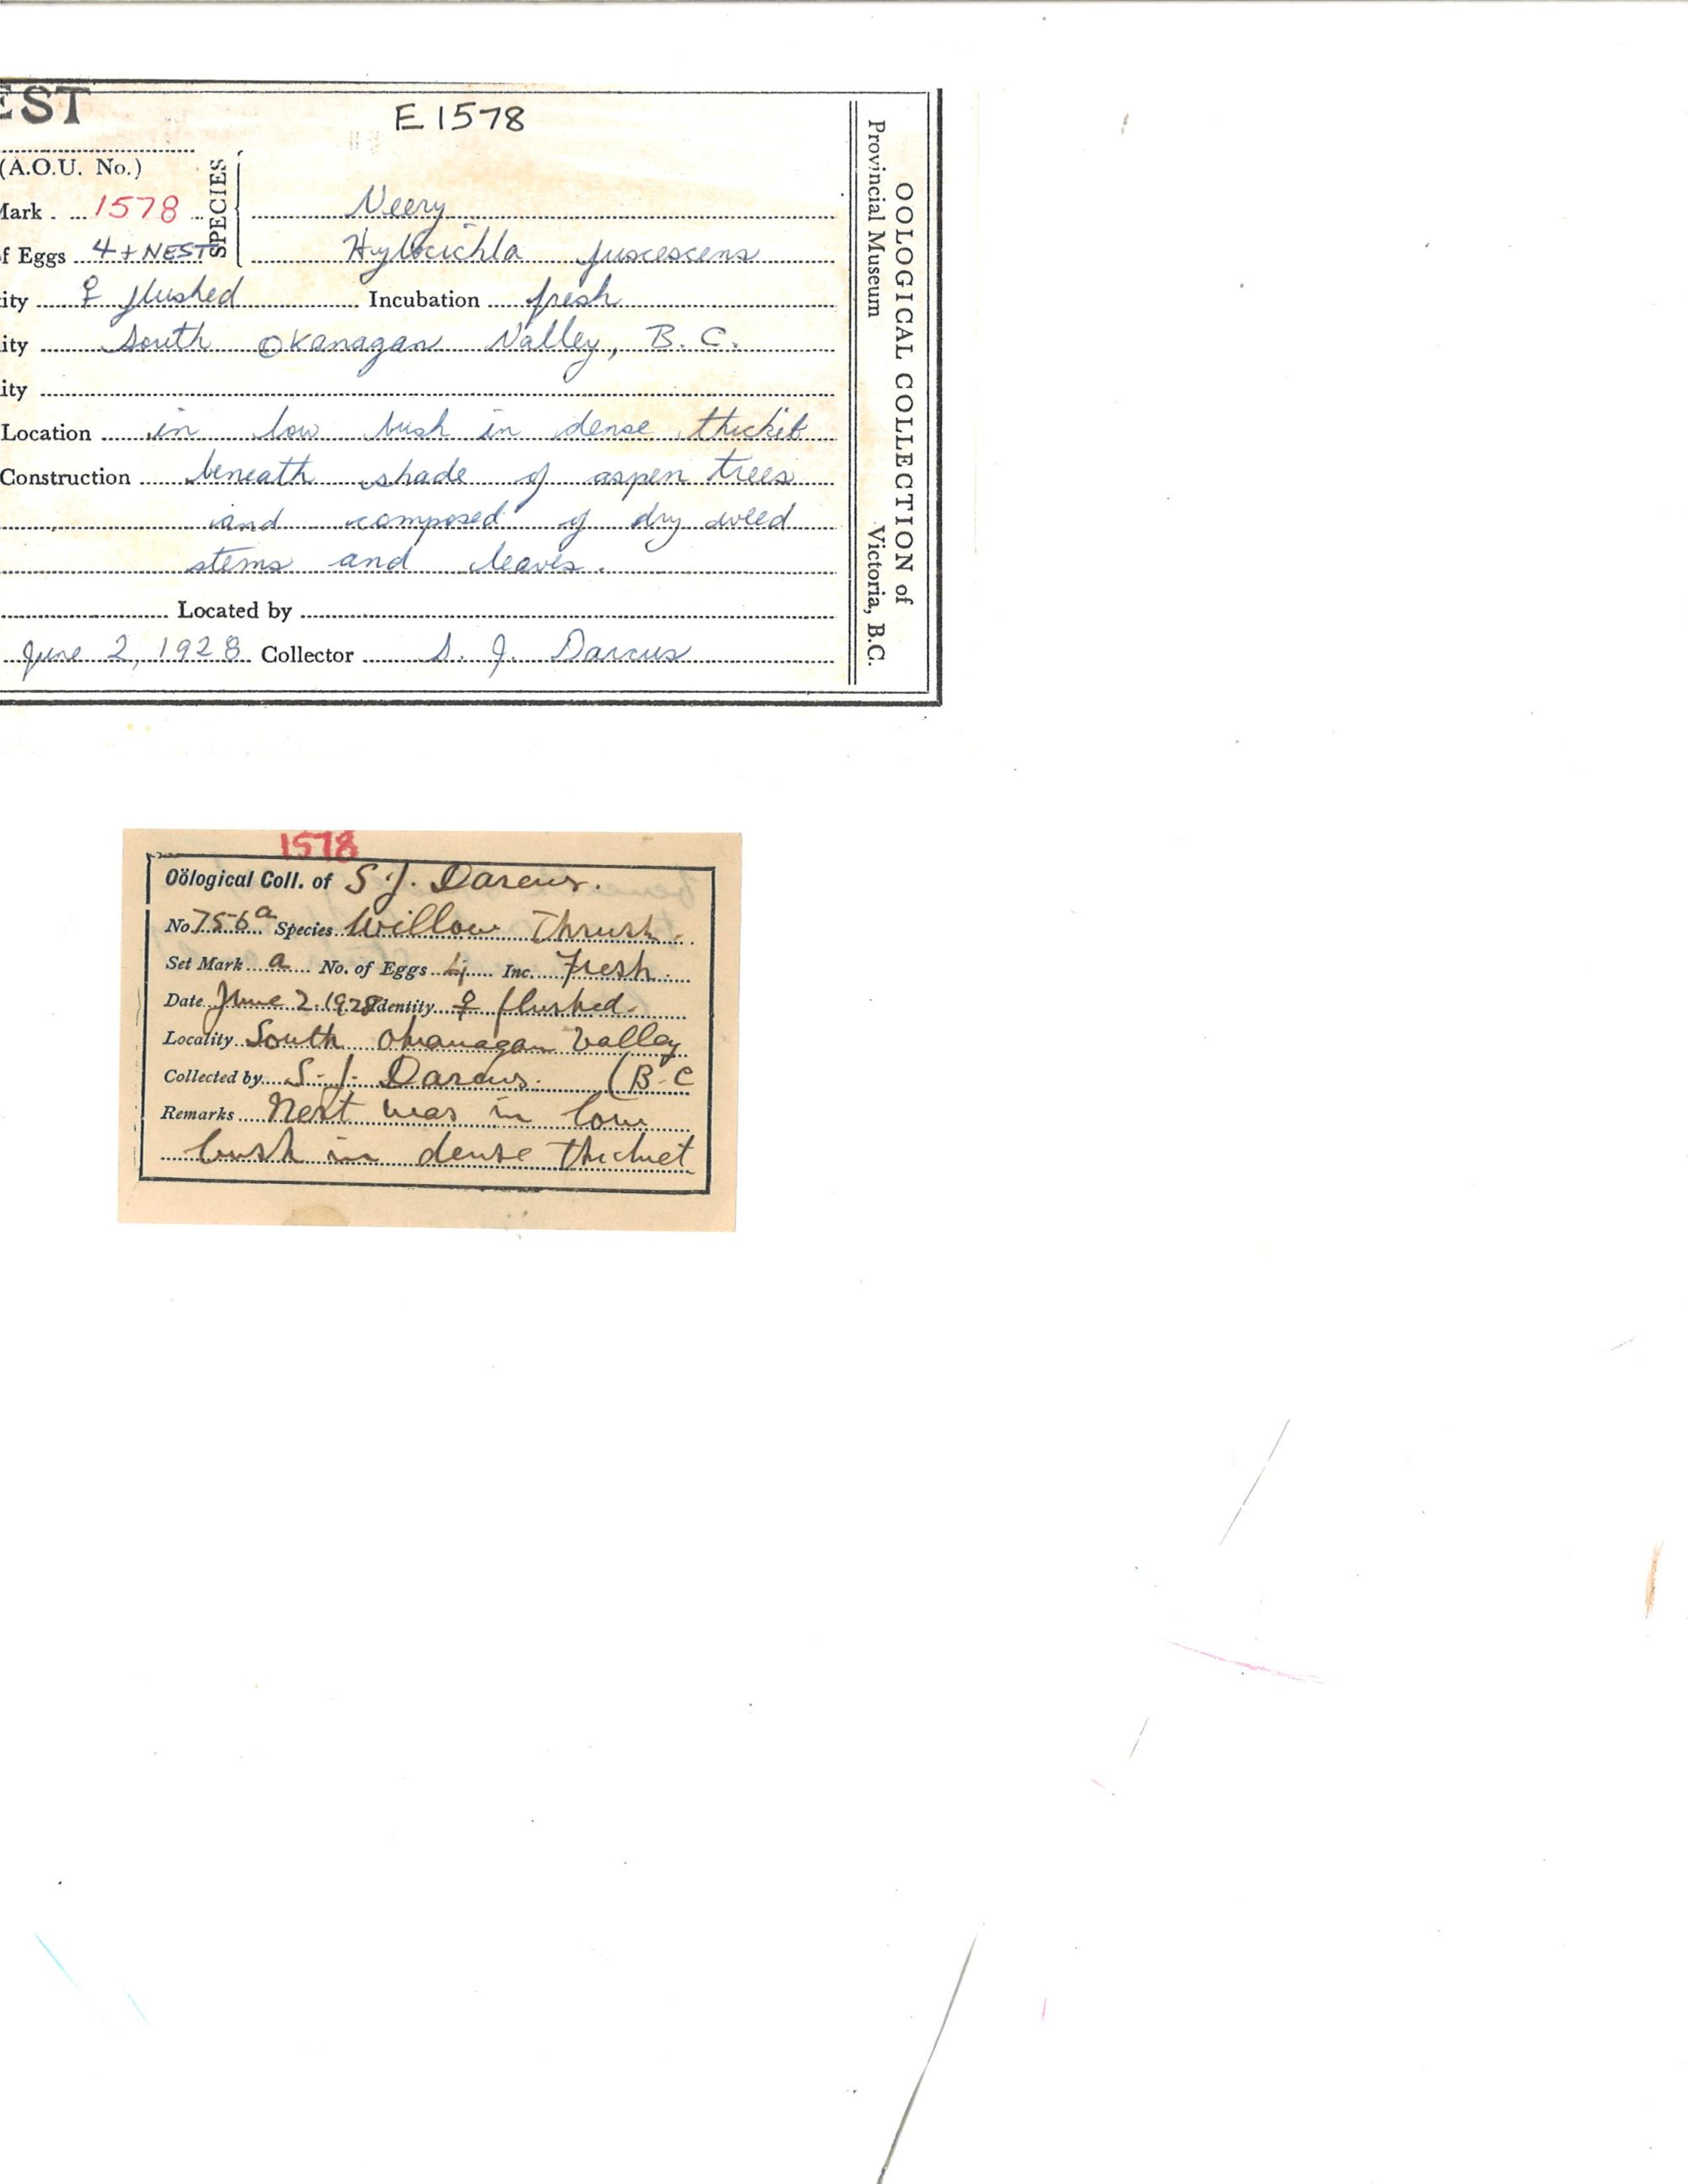 EST
E 1578
(A.O.U. No.)
Mark . 1578 SPECIES Veery
f Eggs 4 + NEST Hylocichla fuscescens
ity ♀ flushed Incubation fresh
ity South Okanagan Valley, B.C.
ity
Location in low bush in dense thickit
Construction beneath shade of aspen trees
and composed of dry weed
stems and leaves.
Located by
June 2, 1928 Collector S. J. Darcus
OOLOGICAL COLLECTION of
Provincial Museum Victoria, B.C.
1578
Oölogical Coll. of S. J. Darcus.
No 756a Species Willow Thrush.
Set Mark a No. of Eggs 4 Inc. Fresh.
Date June 2. 1928 Identity ♀ flushed.
Locality South Okanagan Valley
Collected by S. J. Darcus. (B.C
Remarks Nest was in low
bush in dense thicket